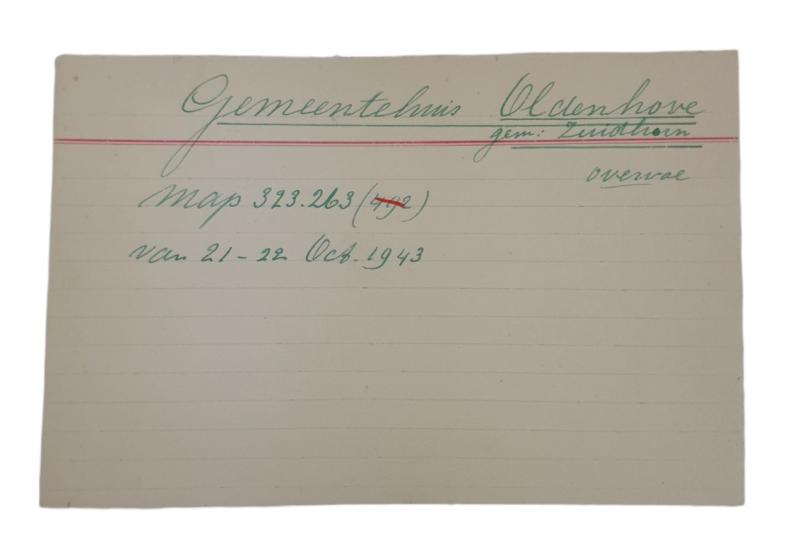 Gemeentehuis Oldenhove
gem: Zuidhorn
overval
map 323.263 (492)
van 21 - 22 Oct. 1943